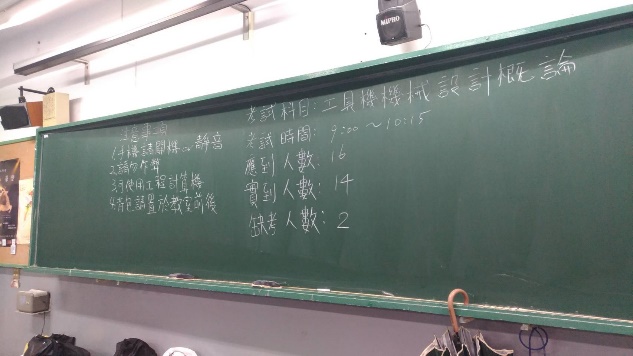 MIPRO
注意事項
1.手機請關機or靜音
2.請勿作弊
3.可使用工程計算機
4.背包請置於教室前後
考試科目:工具機機械設計概論
考試時間: 9:00~10:15
應到人數: 16
實到人數: 14
缺考人數: 2